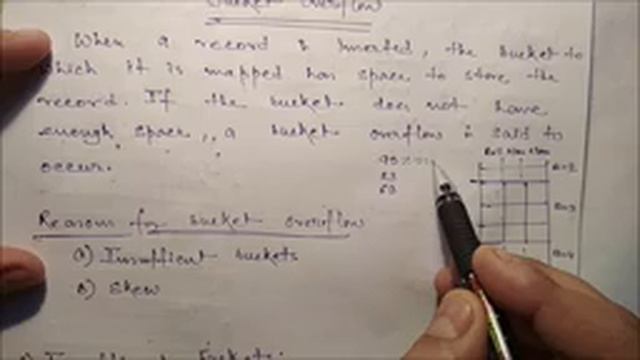 Bucket overflow
When a record is inserted, the bucket to
which it is mapped has space to store the
record. If the bucket does not have
enough space, a bucket overflow is said to
occur.
Reasons for bucket overflow
a) Insufficient buckets
b) Skew